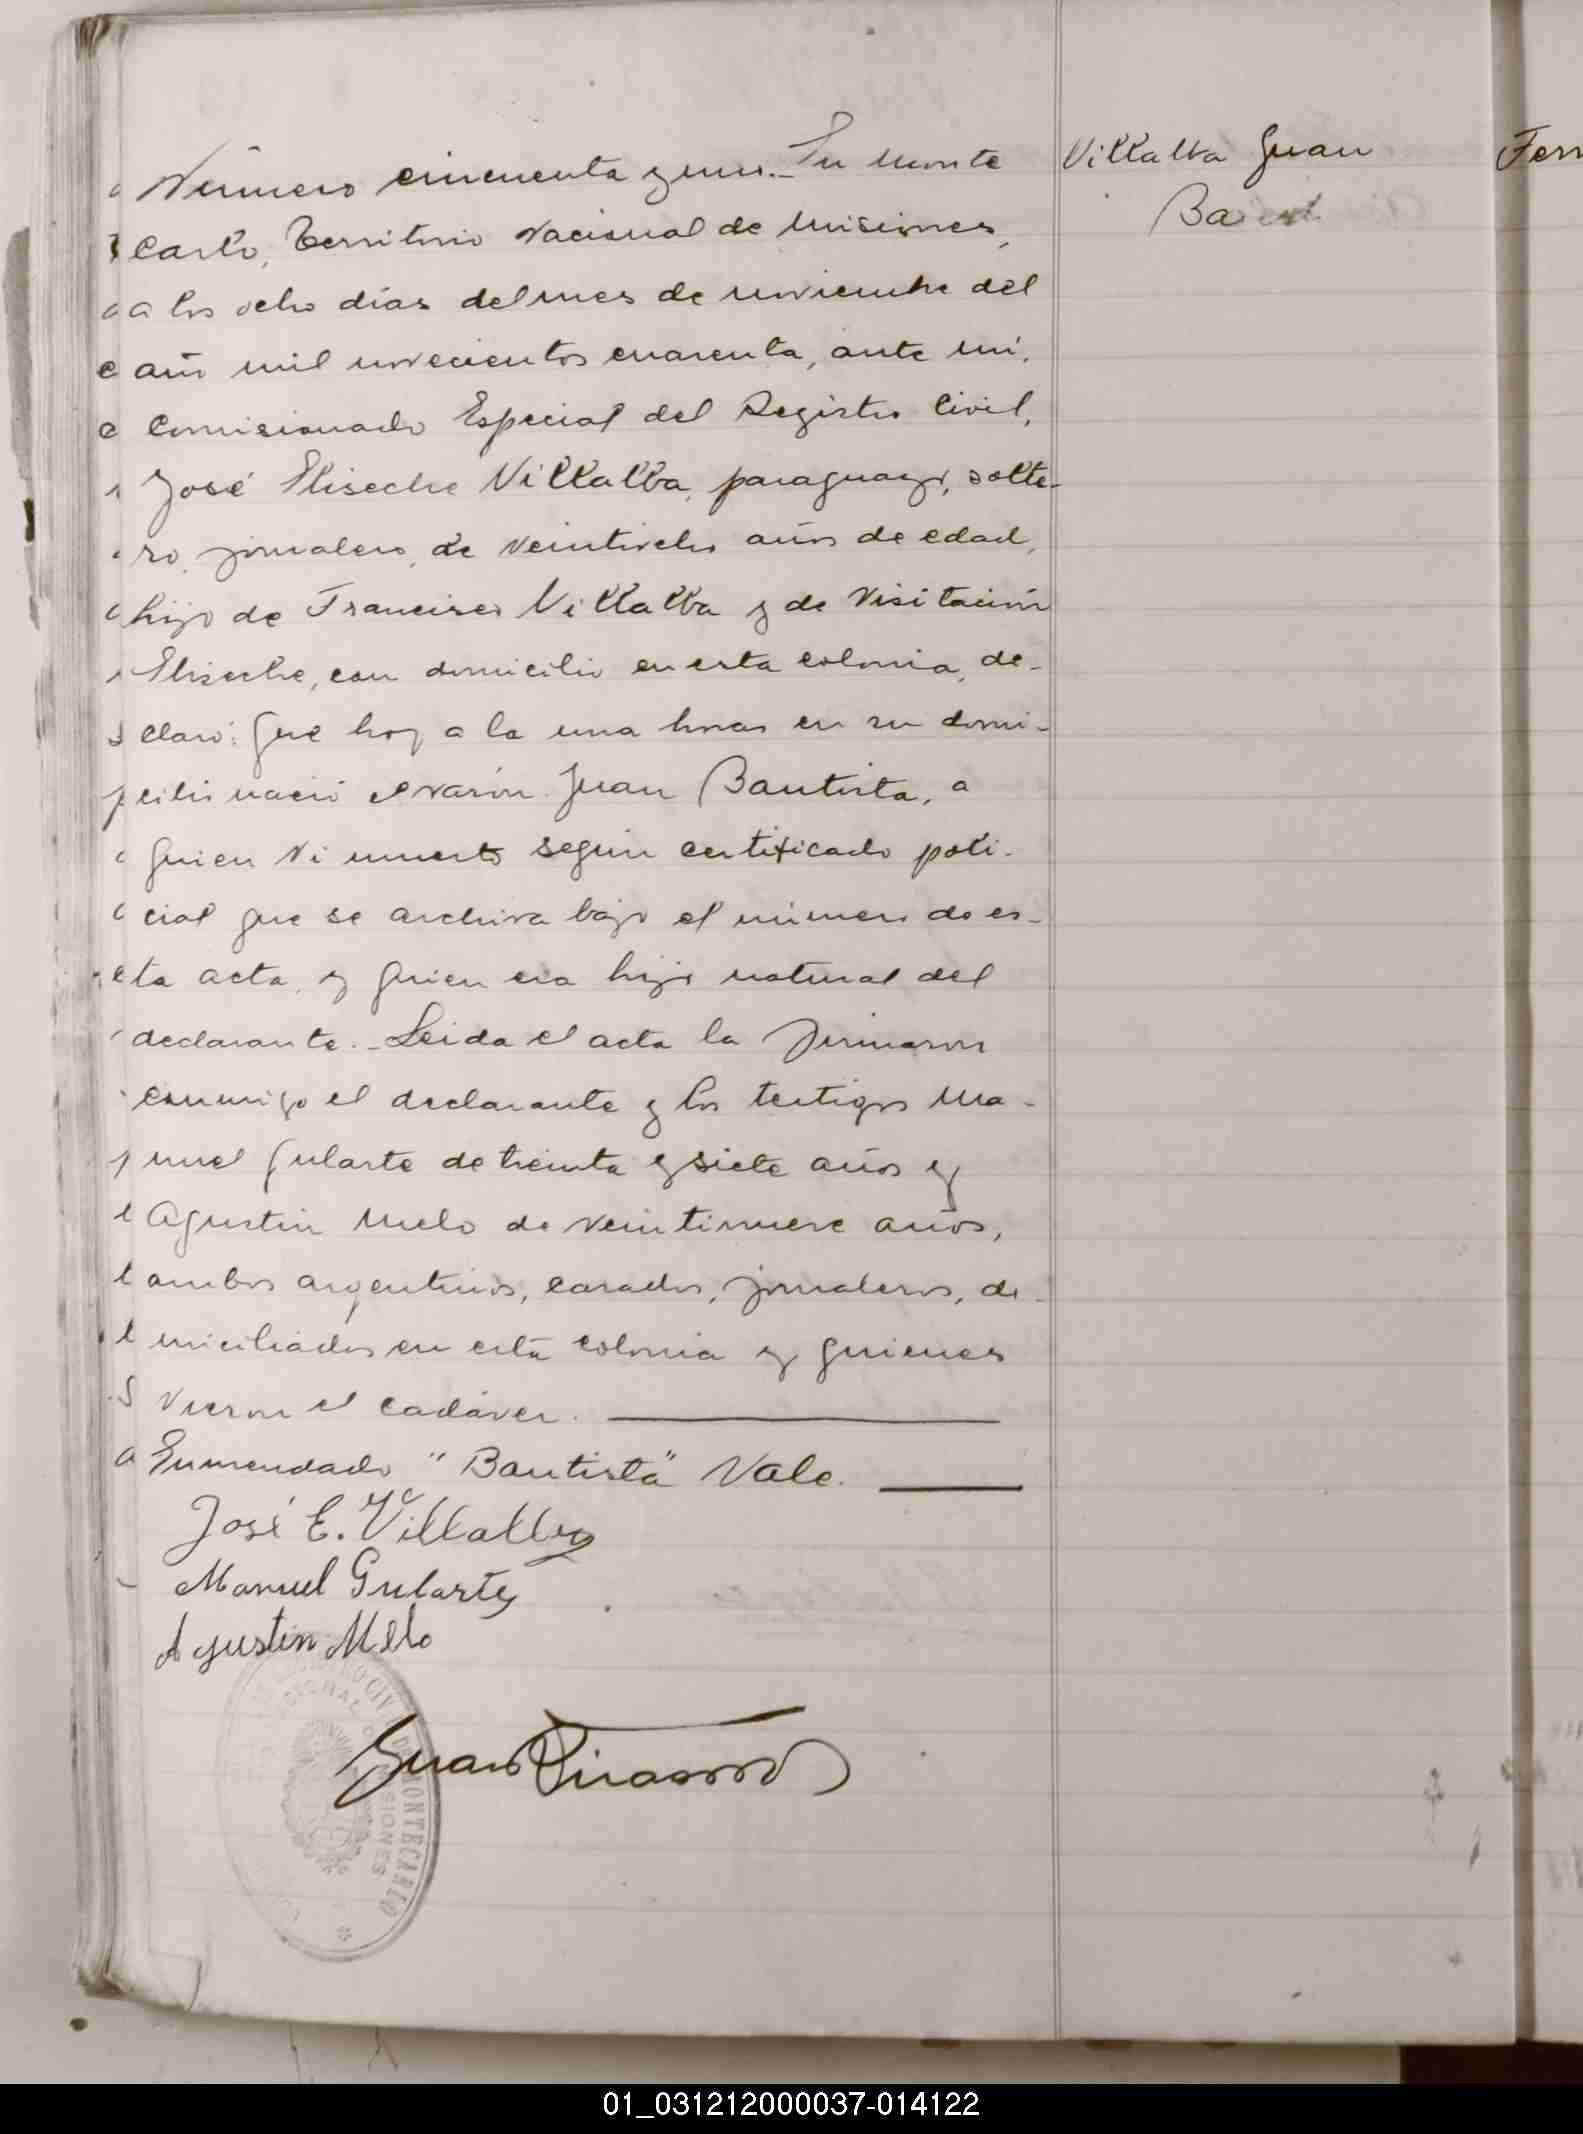 Número cincuenta y uno.- En Monte
Carlo, Territorio Nacional de Misiones,
a los ocho días del mes de noviembre del
año mil novecientos cuarenta, ante mi,
Comisionado Especial del Registro Civil,
José Eliseche Villalba, paraguayo, solte-
ro, jornalero, de veintiocho años de edad,
hijo de Francisco Villalba y de Visitación
Eliseche, con domicilio en esta colonia, de-
claró: Que hoy a la una horas en su domi-
cilio nació el varón Juan Bautista, a
quien vi muerto según certificado poli-
cial que se archiva bajo el número de es-
ta acta, y quien era hijo natural del
declarante.- Leida el acta la firmaron
conmigo el declarante y los testigos Ma-
nuel Gularte de treinta y siete años y
Agustín Melo de veintinueve años,
ambos argentinos, casados, jornaleros, do-
miciliados en esta colonia y quienes
vieron el cadáver.
Enmendado "Bautista" Vale.
José E. Villalba
Manuel Gularte
Agustin Melo
Juan
Villalba Juan
Baut
Ferr
MONTECARLO
MISIONES
01_031212000037-014122